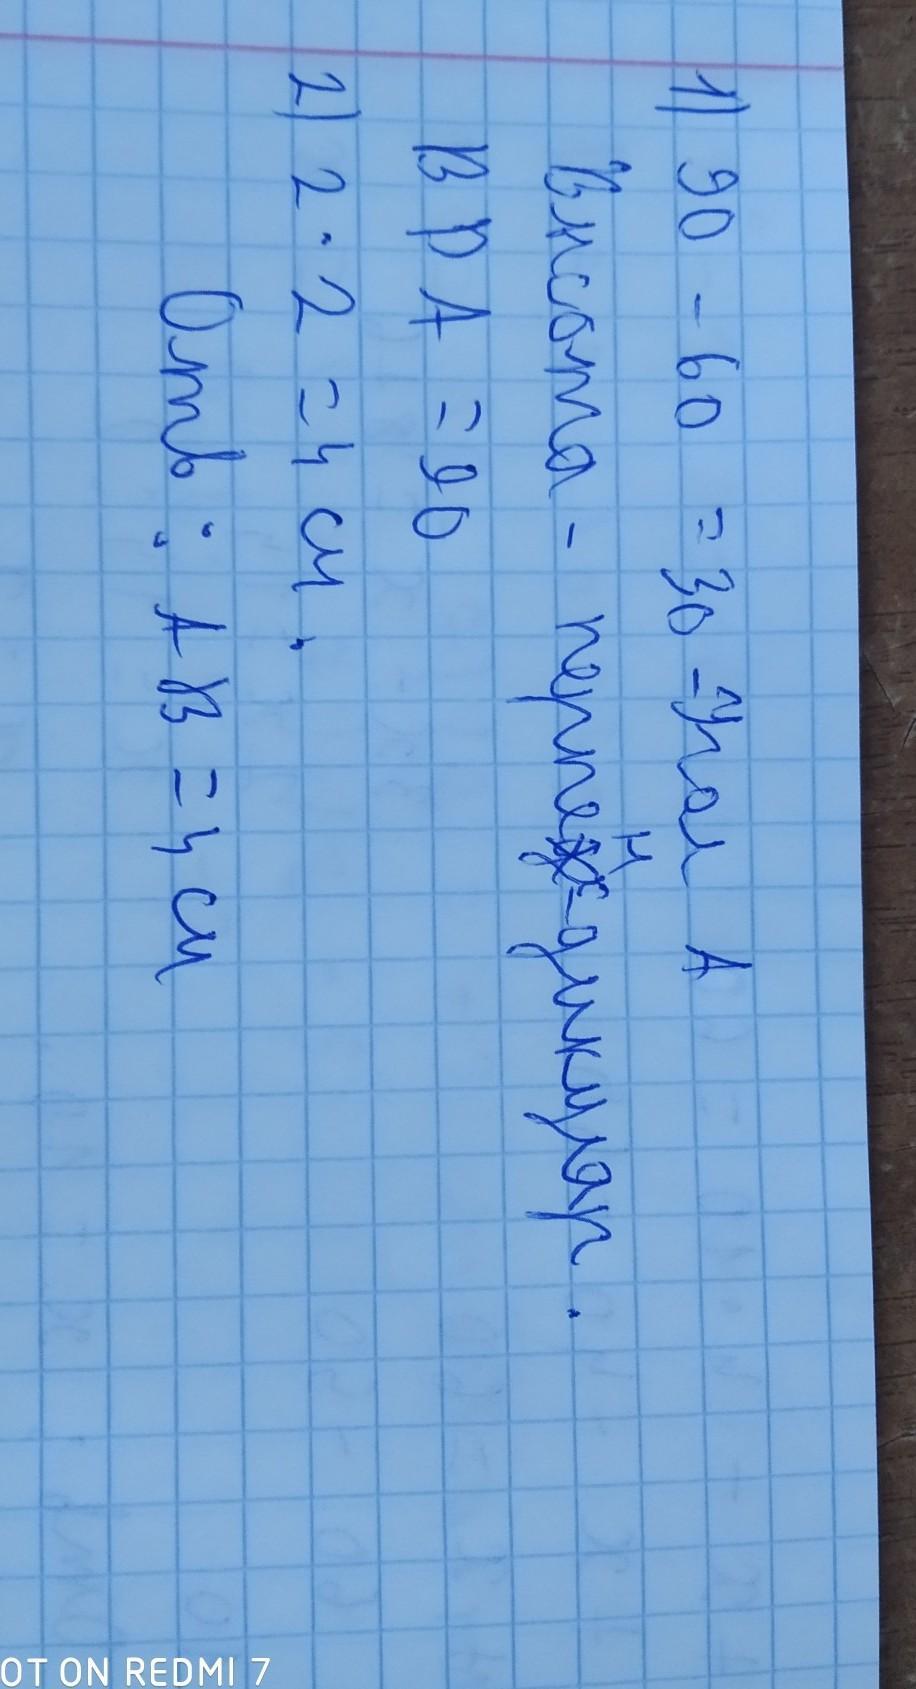 1) 90 - 60 = 30 - Угол А
Висота - перпен-дикуляр.
В D A = 90
2) 2 · 2 = 4 см.
Отв: АВ = 4 см
OT ON REDMI 7